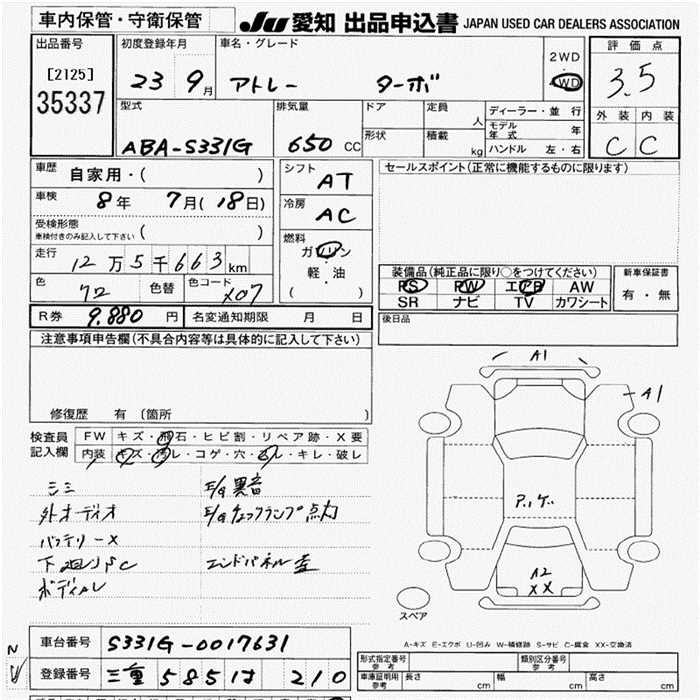 車内保管・守衛保管
JU 愛知 出品申込書 JAPAN USED CAR DEALERS ASSOCIATION
出品番号
[2125]
35337
初度登録年月
23 9月
車名・グレード
アトレー ターボ
2WD
・
4WD
評価点
3.5
外装 内装
C C
型式
ABA-S331G
排気量
650 CC
ドア
定員
人
形状
積載
kg
ディーラー・並行
モデル年式 年
ハンドル 左・右
車歴
自家用・( )
車検
8年 7月(18日)
受検形態
車検付きのみ記入して下さい ( )
走行
12万5千663km
色
色替
色コード
X07
シフト
AT
冷房
AC
燃料
ガソリン
・
軽・油
( )
セールスポイント(正常に機能するものに限ります)
装備品(純正品に限り○をつけてください)
PS PW エアB AW
SR ナビ TV カワシート
新車保証書
有・無
後日品
R券 9,880円
名変通知期限 月 日
注意事項申告欄(不具合内容等は具体的に記入して下さい)
修復歴 有 (箇所 )
検査員
記入欄
FW キズ・飛石・ヒビ割・リペア跡・X要
内装 キズ・汚レ・コゲ・穴・スレ・キレ・破レ
シミ
外オーディオ
バッテリーX
E/G異音
E/Gチェックランプ点灯
A1
A1
アンゲ
A2
XX
スペア
A-キズ E-エクボ U-凹み W-補修跡 S-サビ C-腐食 XX-交換済
車台番号
S331G-0017631
登録番号
三重 585 は 210
形式指定番号
参考
類別区分番号
参考
車庫証明用
参考
長さ cm
幅 cm
高さ cm